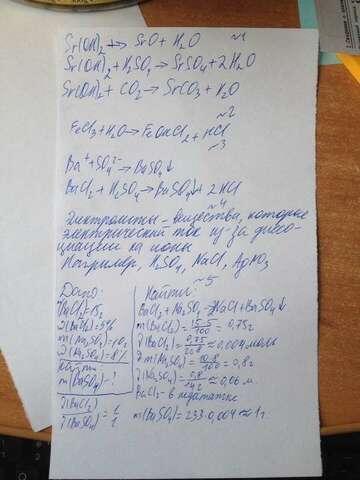 Sr(OH)₂ → SrO + H₂O ~1
Sr(OH)₂ + H₂SO₄ → SrSO₄ + 2H₂O
Sr(OH)₂ + CO₂ → SrCO₃ + H₂O
~2
FeCl₃ + H₂O → FeOHCl₂ + HCl
~3
Ba⁺ + SO₄²⁻ → BaSO₄↓
BaCl₂ + H₂SO₄ → BaSO₄↓ + 2HCl
~4
Электролиты - вещества, которые
электрический ток из-за диссо-
циации на ионы
Например, H₂SO₄, NaCl, AgNO₃
~5
Дано:
(BaCl₂) = 15г
(BaCl₂) = 5%
m(Na₂SO₄) = 10г
(Na₂SO₄) = 8%
Найти
m(BaSO₄) - ?
(BaCl₂)
(BaSO₄) = 1/1
Найти:
BaCl₂ + Na₂SO₄ → 2NaCl + BaSO₄↓
m(BaCl₂) = 15·5/100 = 0,75г
(BaCl₂) = 0,75/208 ≈ 0,004 моль
m(Na₂SO₄) = 10·8/100 = 0,8г
(Na₂SO₄) = 0,8/142 ≈ 0,06 м.
BaCl₂ - в недостатке
m(BaSO₄) = 233·0,004 ≈ 1г